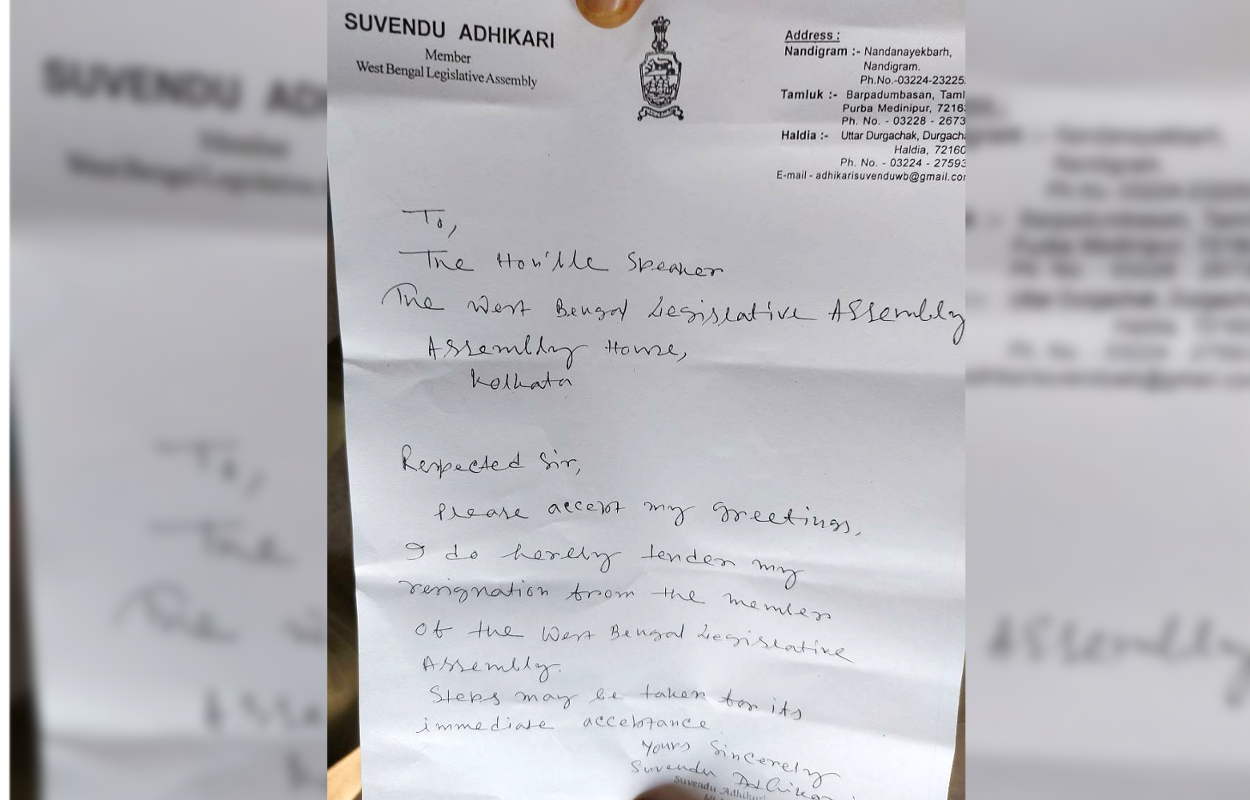 SUVENDU ADHIKARI
Member
West Bengal Legislative Assembly
Address :
Nandigram :- Nandanayekbarh,
Nandigram.
Ph.No.-03224-23225
Tamluk :- Barpadumbasan, Taml
Purba Medinipur, 7216
Ph. No. - 03228 - 2673
Haldia :- Uttar Durgachak, Durgach
Haldia, 72160
Ph. No. - 03224 - 27593
E-mail - adhikarisuvenduwb@gmail.com
To,
The Hon'ble Speaker
The West Bengal Legislative Assembly
Assembly House,
Kolkata
Respected Sir,
Please accept my greetings.
I do hereby tender my
resignation from the member
of the West Bengal Legislative
Assembly.
Steps may be taken for its
immediate acceptance
Yours Sincerely
Suvendu Adhikari
Suvendu Adhikari